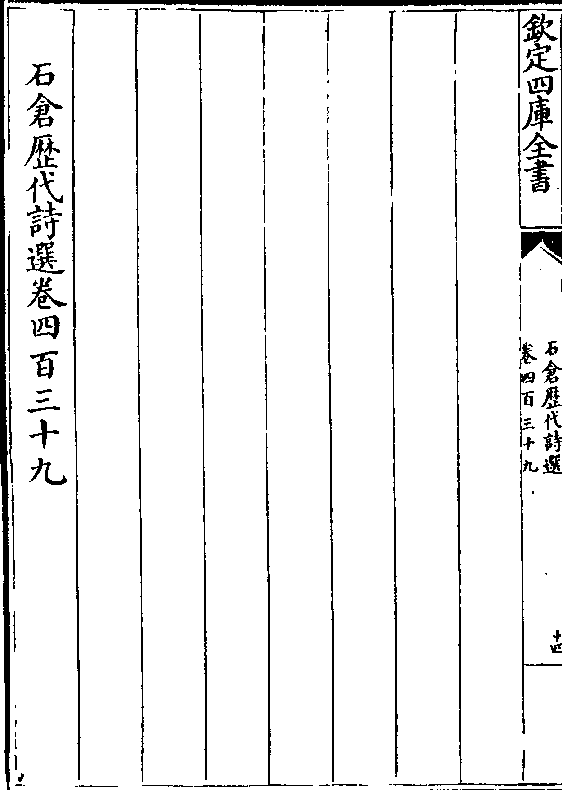 欽定四庫全書
石倉歴代詩選
卷四百三十九
十四
石倉歴代詩選卷四百三十九